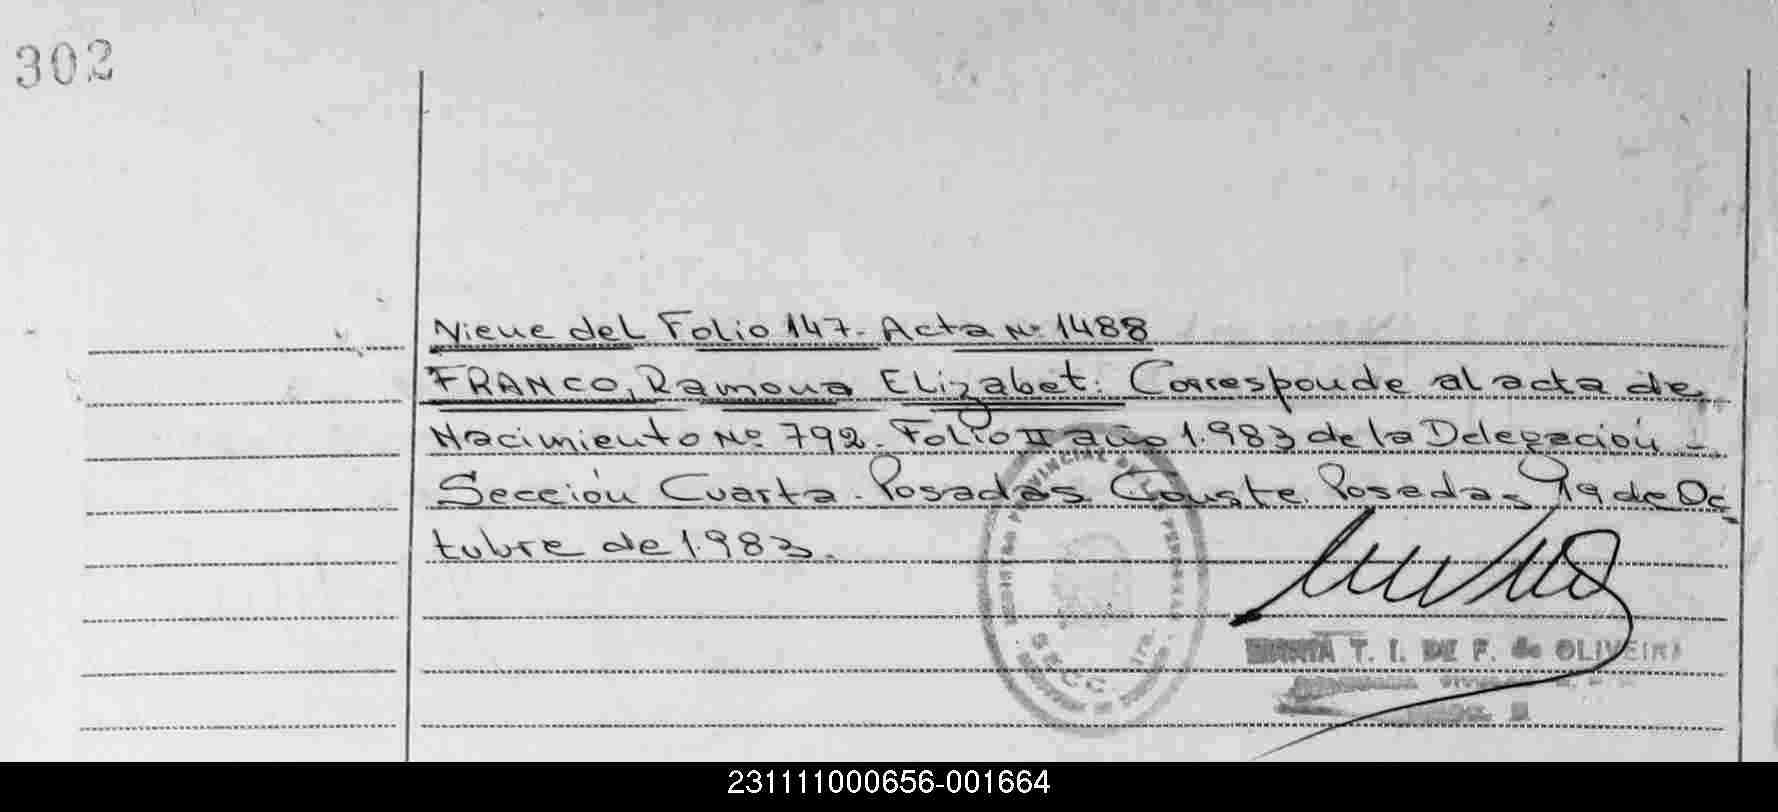 302
Viene del Folio 147. Acta Nº 1488
FRANCO, Ramona Elizabet: Corresponde al acta de
Nacimiento Nº 792. Folio II año 1.983 de la Delegación -
Sección Cuarta. Posadas. Conste. Posadas, 19 de Oc
tubre de 1.983.
REGISTRO PROVINCIAL DE LAS PERSONAS
SECC. 4ta.
T. I. DE F. de OLIVEIRA
231111000656-001664